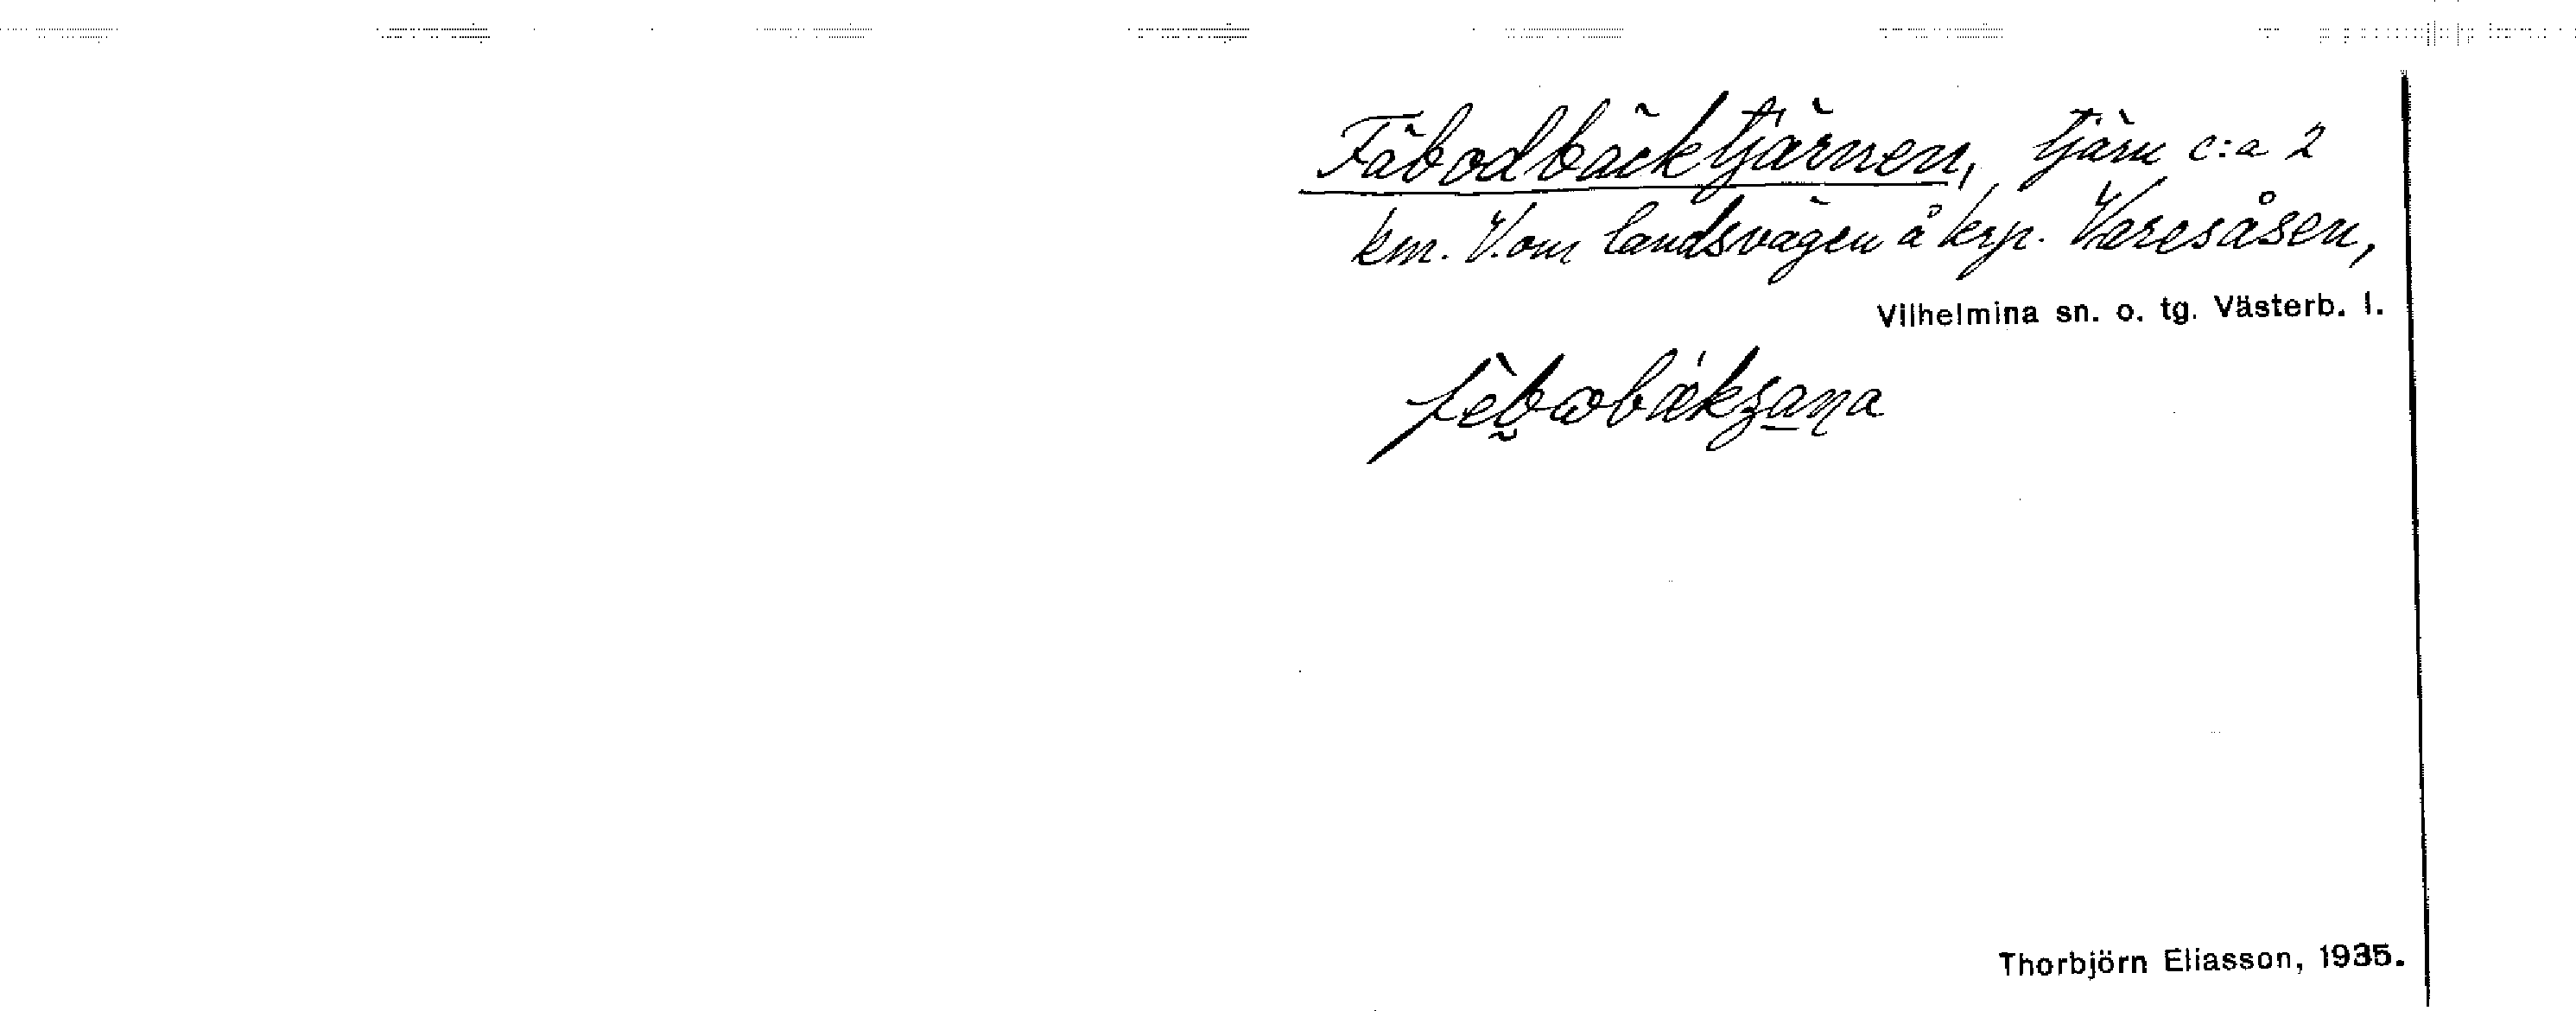 Fäbodbäcktjärnen, tjärn c:a 2
km. V. om landsvägen å krp. Varesåsen,
Vilhelmina sn. o. tg. Västerb. l.
Thorbjörn Eliasson, 1935.